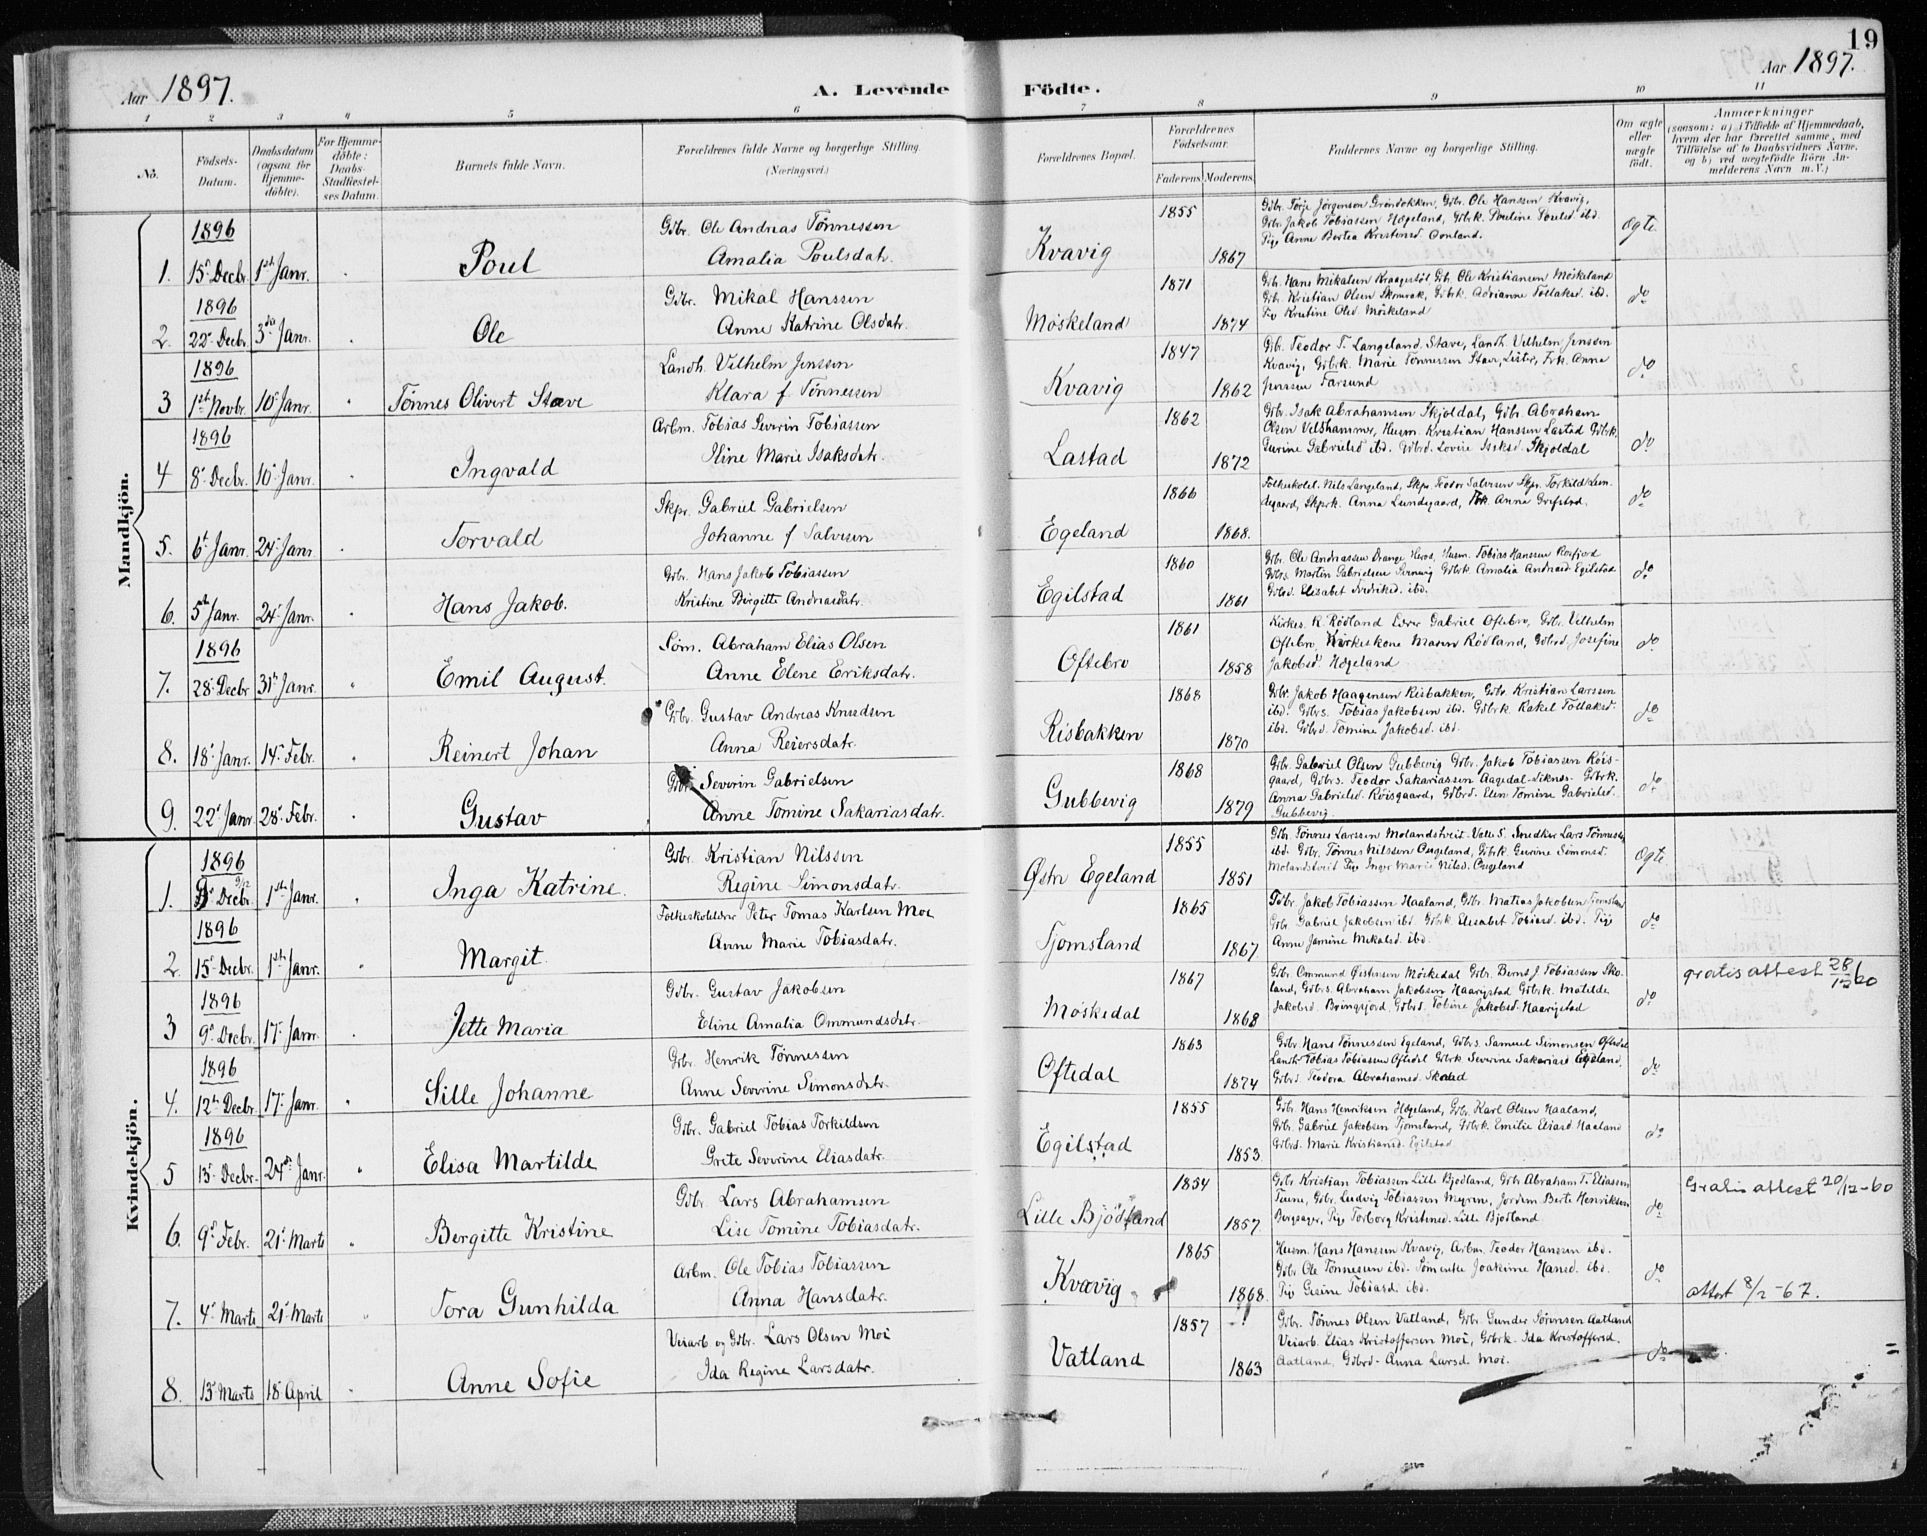 19
Aar 1897.
A. Levende Födte.
Aar 1897.
1 2 3 4 5 6 7 8 9 10 11
No.
Födsels-Datum.
Daabsdatum (ogsaa for Hjemmedöbte).
For Hjemmedöbte: Daabs-Stadfæstelses Datum.
Barnets fulde Navn.
Forældrenes fulde Navne og borgerlige Stilling. (Næringsvei.)
Forældrenes Bopæl.
Forældrenes Födselsaar.
Faderens Moderens
Faddernes Navne og borgerlige Stilling.
Om ægte eller uægte födt.
Anmærkninger
(saasom: a) i Tilfælde af Hjemmedaab, hvem der har forrettet samme, med Tilföielse af to Daabsvidners Navne, og b) ved uægtefödte Börn Anmelderens Navn m. V.)
Mandkjön.
1896
1. 15 Decbr. 1ste Janr. Poul
Gdbr. Ole Andreas Tønnessen
Amalia Poulsdatr.
Kvavig 1855 1867
Gdbr. Jakob Tobiassen Hægeland, Gdbrk. Pouline Poulsd. ibd.
ægte.
1896
2. 22 Decbr. 3die Janr. Ole
Gdbr. Mikal Hanssen
Anne Katrine Olsdatr.
Møskeland 1871 1874
Gdbr. Kristian Olsen Skomrak, Gdbrk. Adrianne Tollaksd. ibd.
Pige Kristine Olsd. Møskeland
do
1896
3 1ste Novbr. 10 Janr. Tønnes Olivert Stave
Landh. Vilhelm Jenssen
Klara f. Tønnessen
Kvavig 1847 1862
Gdbr. Teodor T. Langeland. Stave, Landh. Vilhelm Jenssen
Kvavig, Gdbrk. Marie Tønnessen Stave, Lister, Frk. Anne
Jenssen Farsund
do
1896
4 8 Decbr. 10 Janr. Ingvald
Arbm. Tobias Severin Tobiassen
Iline Marie Isaksdatr.
Lastad 1862 1872
Gdbr. Isak Abrahamsen Skjoldal, Gdbr. Abraham
Olsen Velshammer, Husm. Kristian Hanssen Lastad Gdbrk.
Gurine Gabrielsd. ibd. Gdbrd. Lovise Isaksd. Skjoldal
do
5. 6te Janr. 24 Janr. Torvald
Skpr. Gabriel Gabrielsen
Johanne f. Salvesen
Egeland 1866 1868.
Folkeskolel. Nils Langeland, Skpr. Teodor Salvesen Skpr. Torkild Lundegaard, Skprk. Anna Lundegaard, Frk. Anne Grefstad.
do
6. 5te Janr. 24 Janr. Hans Jakob.
Gdbr. Hans Jakob Tobiassen
Kristine Birgitte Andreasdatr.
Egilstad 1860 1861
Gdbr. Ole Andreassen Drange Heros, Husm. Tobias Hanssen Rosfjord
Gdbrk. Amalia Andreasd. Egilstad
Gdbrd. Elisabet Fredriksd. ibd.
do
1896
7. 28 Decbr. 31te Janr. Emil August.
Søm. Abraham Elias Olsen
Anne Elene Eriksdatr.
Oftebro 1861 1858
Kirkes. K. Rødland Lærer Gabriel Oftebro, Gdbr. Vilhelm
Oftebro, Kirkes.kone Maren Rødland, Gdbrd. Josefine
Jakobsd. Hægeland
do
8. 18 Janr. 14 Febr. Reinert Johan
Gdbr. Gustav Andreas Knudsen
Anna Reiersdatr.
Risbakken 1868 1870
Gdbr. Jakob Haagensen Risbakken, Gdbr. Kristian Larssen
ibd. Gdbrs. Tobias Jakobsen ibd. Gdbrk. Rakel Tollaksd.
ibd. Gdbrd. Tomine Jakobsd. ibd.
do
9. 22 Janr. 28 Febr. Gustav
Gdbr. Severin Gabrielsen
Anne Tomine Sakariasdatr.
Gubbevig 1868 1879
Gdbr. Gabriel Olsen Gubbevig Gdbr. Jakob Tobiassen Røisgaard, Gdbrs. Teodor Sakariassen Aagedal-Liknes- Gdbrk.
Anna Gabrielsd. Røisgaard, Gdbrd. Elen Tomine Gabrielsd.
Gubbevig
do
Kvindekjön.
1896
1. Decbr. 9/12 1ste Janr. Inga Katrine.
Gdbr. Kristian Nilssen
Regine Simonsdatr.
Østre Egeland 1855 1851
Gdbr. Tønnes Larssen Molandstveit-Valle S. Snedker Lars Tønnessen
ibd. Gdbr. Tønnes Nilssen Augeland, Gdbrk. Gurine Simonsd.
Molandstveit Pige Inger Marie Nilsd. Augland
ægte
1896
2. 15 Decbr. 1ste Janr. Margit.
Folkeskolelærer Peter Tomas Karlsen Moe
Anne Marie Tobiasdatr.
Tjomsland 1865 1867
Gdbr. Jakob Tobiassen Haaland, Gdbr. Matias Jakobsen Tjomsland
Gdbr. Gabriel Jakobsen ibd. Gdbrk. Elisabet Tobiasd. ibd. Pige
Anne Jamine Mikalsd. ibd.
do
1896
3 9 Decbr. 17 Janr. Jette Maria
Gdbr. Gustav Jakobsen
Eline Amalia Ommundsdatr.
Møskedal 1867 1868
Gdbr. Ommund Østensen Møskedal Gdbr. Bernt J. Tobiassen Skoland, Gdbrs. Abraham Jakobsen Haarystad Gdbrk. Matilde
Jakobsd. Bringsjord, Gdbrd. Tobine Jakobsd. Haarystad
do
gratis attest 28/12 60
1896
4. 12te Decbr. 17 Janr. Sille Johanne
Gdbr. Henrik Tønnessen
Anne Severine Simonsdatr.
Oftedal 1863 1874
Gdbr. Hans Tønnessen Egeland, Gdbrs. Samuel Simonsen Oftedal
Landh. Tobias Tobiassen Oftedal Gdbrk. Severine Sakariasd Egeland,
Gdbrd. Teodora Abrahamsd. Skolad
do
1896
5 13 Decbr. 24de Janr. Elisa Martilde
Gdbr. Gabriel Tobias Torkildsen
Grete Severine Eliasdatr.
Egilstad 1855 1853
Gdbr. Hans Henriksen Hægeland, Gdbr. Karl Olsen Haaland,
Gdbr. Gabriel Jakobsen Tjomsland, Gdbrk. Emilie Eliasd Haaland
Gdbrd. Marie Kristiansd. Egilstad
do
6. 9 Febr. 21 Marts Bergitte Kristine
Gdbr. Lars Abrahamsen
Lise Tomine Tobiasdatr.
Lille Bjødland 1854 1857
Gdbr. Kristian Tobiassen Lille Bjødland, Gdbr. Abraham T. Eliassen
Gdbr. Ludvig Tobiassen Jordm Berte Henriksen
Pige Torborg Kristensd. Lille Bjødland
do
Gratis attest 20/12-60
7. 4 Marts 21 Marts Tora Gunhilda
Arbm. Ole Tobias Tobiassen
Anna Hansdatr.
Kvavig 1865 1868.
Husm. Hans Hanssen Kvavig, Arbm. Teodor Hanssen ibd.
Gdbr. Ole Tønnesen ibd. Sømenke Joakime Hansd. ibd.
Pige Gesine Tobiasd. ibd.
do
attest 8/2-67.
8. 13 Marts 18 April Anne Sofie
Veiarb. og Gdbr. Lars Olsen Moi
Ida Regine Larsdatr.
Vatland 1857 1863
Gdbr. Tønnes Olsen Vatland, Gdbr. Gunder Sørensen Aatland
Veiarb. Elias Kristoffersen Moi, Gdbrk. Ida Kristoffersd.
Aatland, Gdbrd. Anna Larsd. Moi.
do